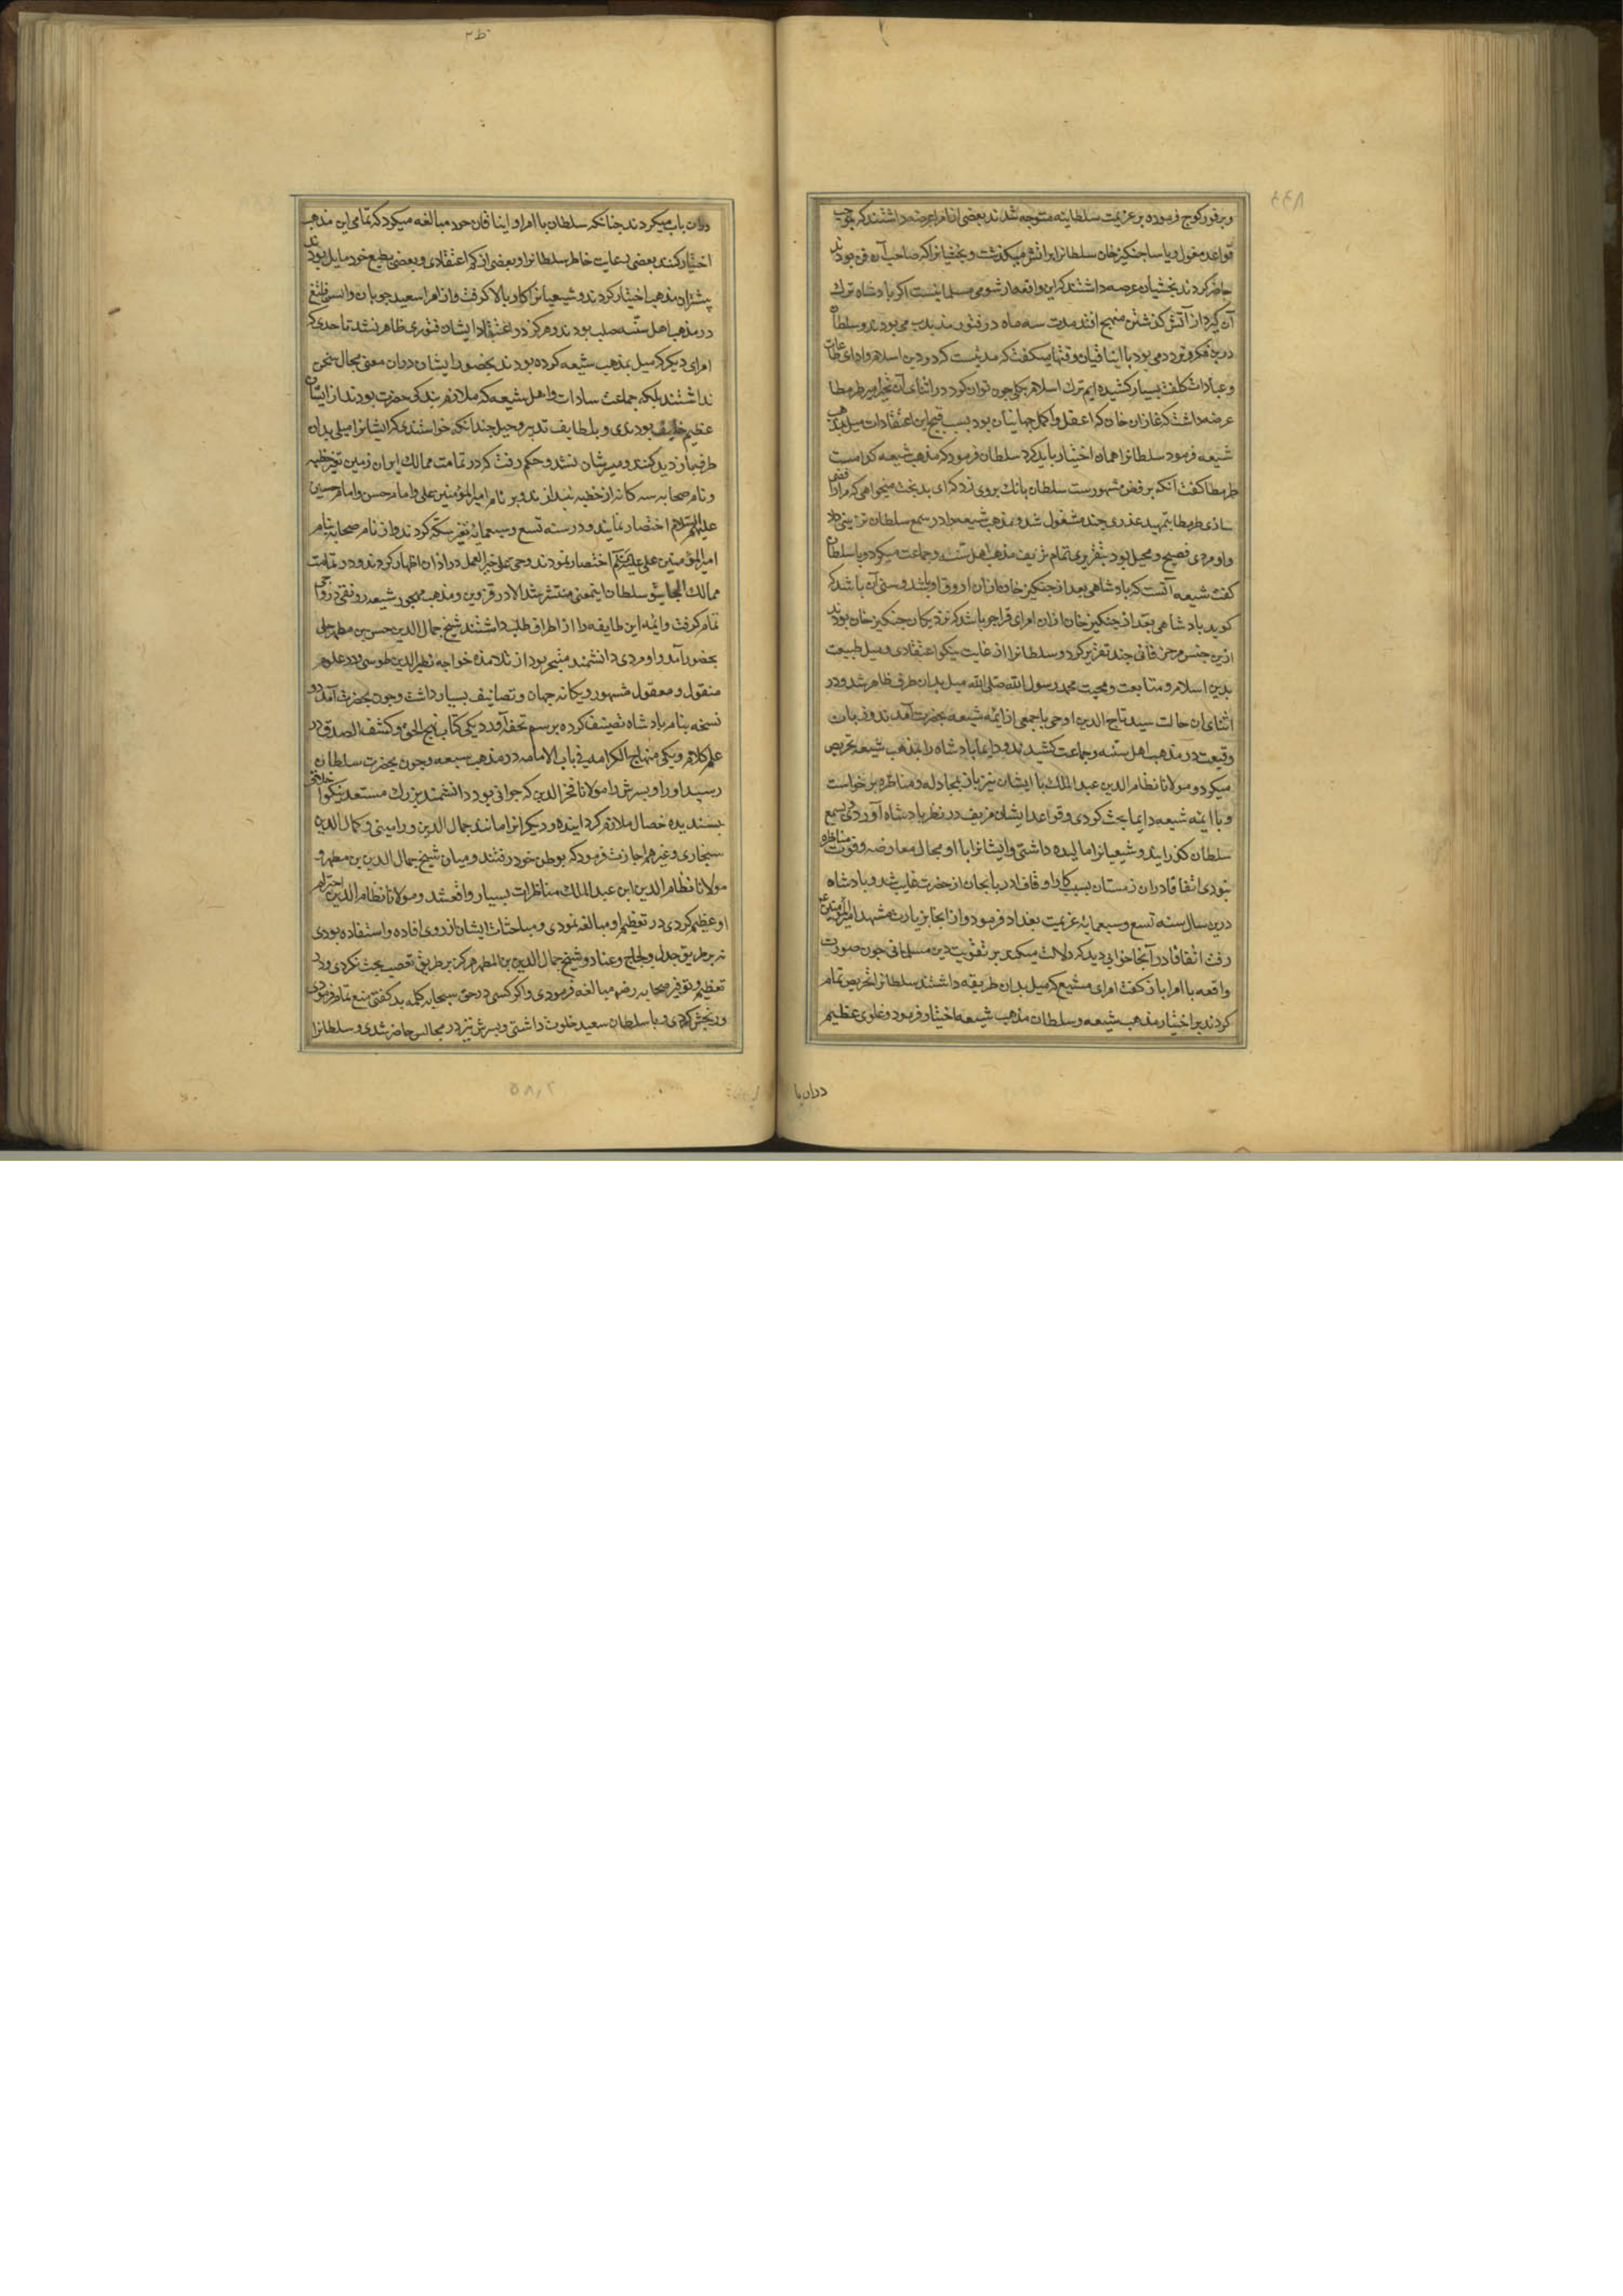 ۸۹۹
و بر فور کوچ فرموده بر عزیمت سلطانیه متوجه شدند بعضی از امرا عرضه داشتند که بموجب
قواعد مغول و یاسا جنکیز خان سلطانرا بر اتش میباید کذشت و بخشیانرا که صاحب آن فن بودند
حاضر کردند بخشیان عرضه داشتند که این واقعه از شومی مسلمانیست اکر پادشاه ترک
آن کیرد از آتش کذشتن منجح افتد مدت سه ماه در فتور مذبذب می بودند و سلطان
درین فکر و تردد می بود با ایناقیان وقتها میکفت که مدتیست که در دین اسلام و ادای طاعات
و عبادات کلفت بسیار کشیده ایم ترک اسلام بکلی چون توان کرد در اثنای آن امیر طرمطا
عرضه داشت که غازان خان که اعقل و اکمل جهانیان بود بسبب قبح این اعتقادات میل بمذهب
شیعه فرمود سلطانرا همان اختیار باید کرد سلطان فرمود که مذهب شیعه کدامست
طرمطا کفت آنکه برفض مشهورست سلطان بانک بروی زد که ای بدبخت میخواهی که مرا رافضی
سازی طرمطا بتمهید عذری چند مشغول شد و مذهب شیعه را در سمع سلطان تزیینی داد
و او مردی فصیح و محیل بود بتقریری تمام تزییف مذهب اهل سنت و جماعت میکرد و با سلطان
کفت شیعه آنست که پادشاهی بعد از جنکیز خان از ان اروق او باشد و سنی آن باشد که
کوید پادشاهی بعد از جنکیز خان از ان امرای قراجو باشد که نزدیکان جنکیز خان بودند
ازین جنس مزخرفاتی چند تقریر کرد و سلطانرا از غایت نیکو اعتقادی و میل طبیعت
بدین اسلام و متابعت و محبت محمد رسول الله صلی الله میل بدان طرف ظاهر شد و در
اثنای ان حالت سید تاج الدین اوجی با جمعی از ایمه شیعه بحضرت آمدند و زبان
وقیعت در مذهب اهل سنه و جماعت کشیدند و دایما پادشاه را بمذهب شیعه تحریض
میکرد و مولانا نظام الدین عبد الملک با ایشان نیز بمجادله و مناظره برخواست
و با ایمه شیعه دایما بحث کردی و قواعد ایشان مزیف در نظر پادشاه آوردی و بسمع
سلطان کذرانید و شیعیانرا مالیده داشتی و ایشانرا با او مجال معارضه و قوت مناظره
نبودی اتفاقا دران زمستان بسبب کار اوقاف اذربایجان از حضرت غایب شد و پادشاه
درین سال سنه تسع و سبعمایه عزیمت بغداد فرمود و از انجا بزیارت مشهد امیر المؤمنین علی
رفت اتفاقا در آنجا خوابی دید که دلالت میکردی بر تقویت دین مسلمانی چون صورت
واقعه با امرا باز کفت امرای متشیع که میل بدان طریقه داشتند سلطانرا تحریض تمام
کردند بر اختیار مذهب شیعه و سلطان مذهب شیعه اختیار فرمود و غلوی عظیم
دران با
دران باب میکردند چنانکه سلطان با امرا و ایناقان خود مبالغه میکرد که تمامی این مذهب
اختیار کنند بعضی رعایت خاطر سلطانرا و بعضی از کم اعتقادی و بعضی بطبع خود مایل بودند
پیشتر ان مذهب اختیار کردند و شیعیانرا کار بالا کرفت و از امرا سعید چوبان و ایسن قتلغ
در مذهب اهل سنه صلب بودند و هرکز در اعتقاد ایشان فتوری ظاهر نشد تا حدی که
امرای دیکر که میل بمذهب شیعه کرده بودند بحضور ایشان دران معنی مجال سخن
نداشتند بلکه جماعت سادات و اهل شیعه که ملازم بندکی حضرت بودند از ایشان
عظیم خایف بودندی و بلطایف تدبیر و حیل چندانکه خواستندی که ایشانرا میلی بدان
طرف بازدید کنند و میسرشان نشد و حکم رفت که در تمامت ممالک ایران زمین تغییر خطبه
و نام صحابه سه کانه از خطبه بیندازند و بر نام امیر المؤمنین علی و امام حسن و امام حسین
علیهم السلام اختصار نمایند و در سنه تسع و سبعمایه تغییر سکه کردند و از نام صحابه بنام
امیر المؤمنین علی علیه السلام اختصار نمودند و حی علی خیر العمل در اذان اظهار کردند و در تمامت
ممالک الجایتو سلطان اینمعنی منتشر شد الا در قزوین و مذهب مهجور شیعه رونقی و رواجی
تمام کرفت و ایمه این طایفه را از اطراف طلب داشتند شیخ جمال الدین حسن بن مطهر حلی
بحضور آمد و او مردی دانشمند متبحر بود از تلامذه خواجه نظیر الدین طوسی و در علوم
منقول و معقول مشهور و یکانه جهان و تصانیف بسیار داشت و چون بحضرت آمد دو
نسخه بنام پادشاه تصنیف کرده برسم تحفه آورد یکی کتاب نهج الحق و کشف الصدق در
علم کلام و یکی منهاج الکرامه فی باب الامامه در مذهب شیعه و چون بحضرت سلطان
رسید او را و پسرش را مولانا فخر الدین که جوانی بود دانشمند بزرک مستعد نیکو اخلاق
پسندیده خصال ملازم کردانید و دیکرانرا مانند جمال الدین ورامینی و کمال الدین
سنجاری و غیرهم اجازت فرمود که بوطن خود رفتند و میان شیخ جمال الدین بن مطهر و
مولانا نظام الدین ابن عبد الملک مناظرات بسیار واقع شد و مولانا نظام الدین احترام
او عظیم کردی در تعظیم او مبالغه نمودی و مباحثات ایشان از روی افاده و استفاده بودی
نه بر طریق جدل و لجاج و عناد و شیخ جمال الدین بن المطهر هرکز بر طریق تعصب بحث نکردی و در
تعظیم و توقیر صحابه رضهم مبالغه فرمودی و اکر کسی در حق صحابه کلمه بد کفتی منع تمام فرمودی
و رنجش کردی و با سلطان سعید خلوت داشتی و پسرش نیز در مجالس حاضر شدی و سلطانرا